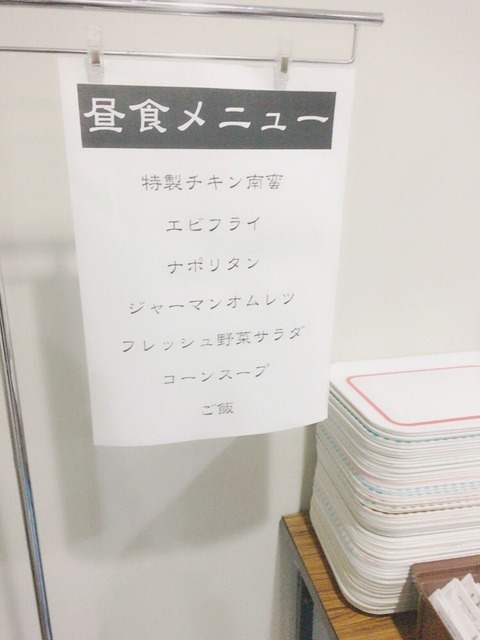 昼食メニュー
特製チキン南蛮
エビフライ
ナポリタン
ジャーマンオムレツ
フレッシュ野菜サラダ
コーンスープ
ご飯